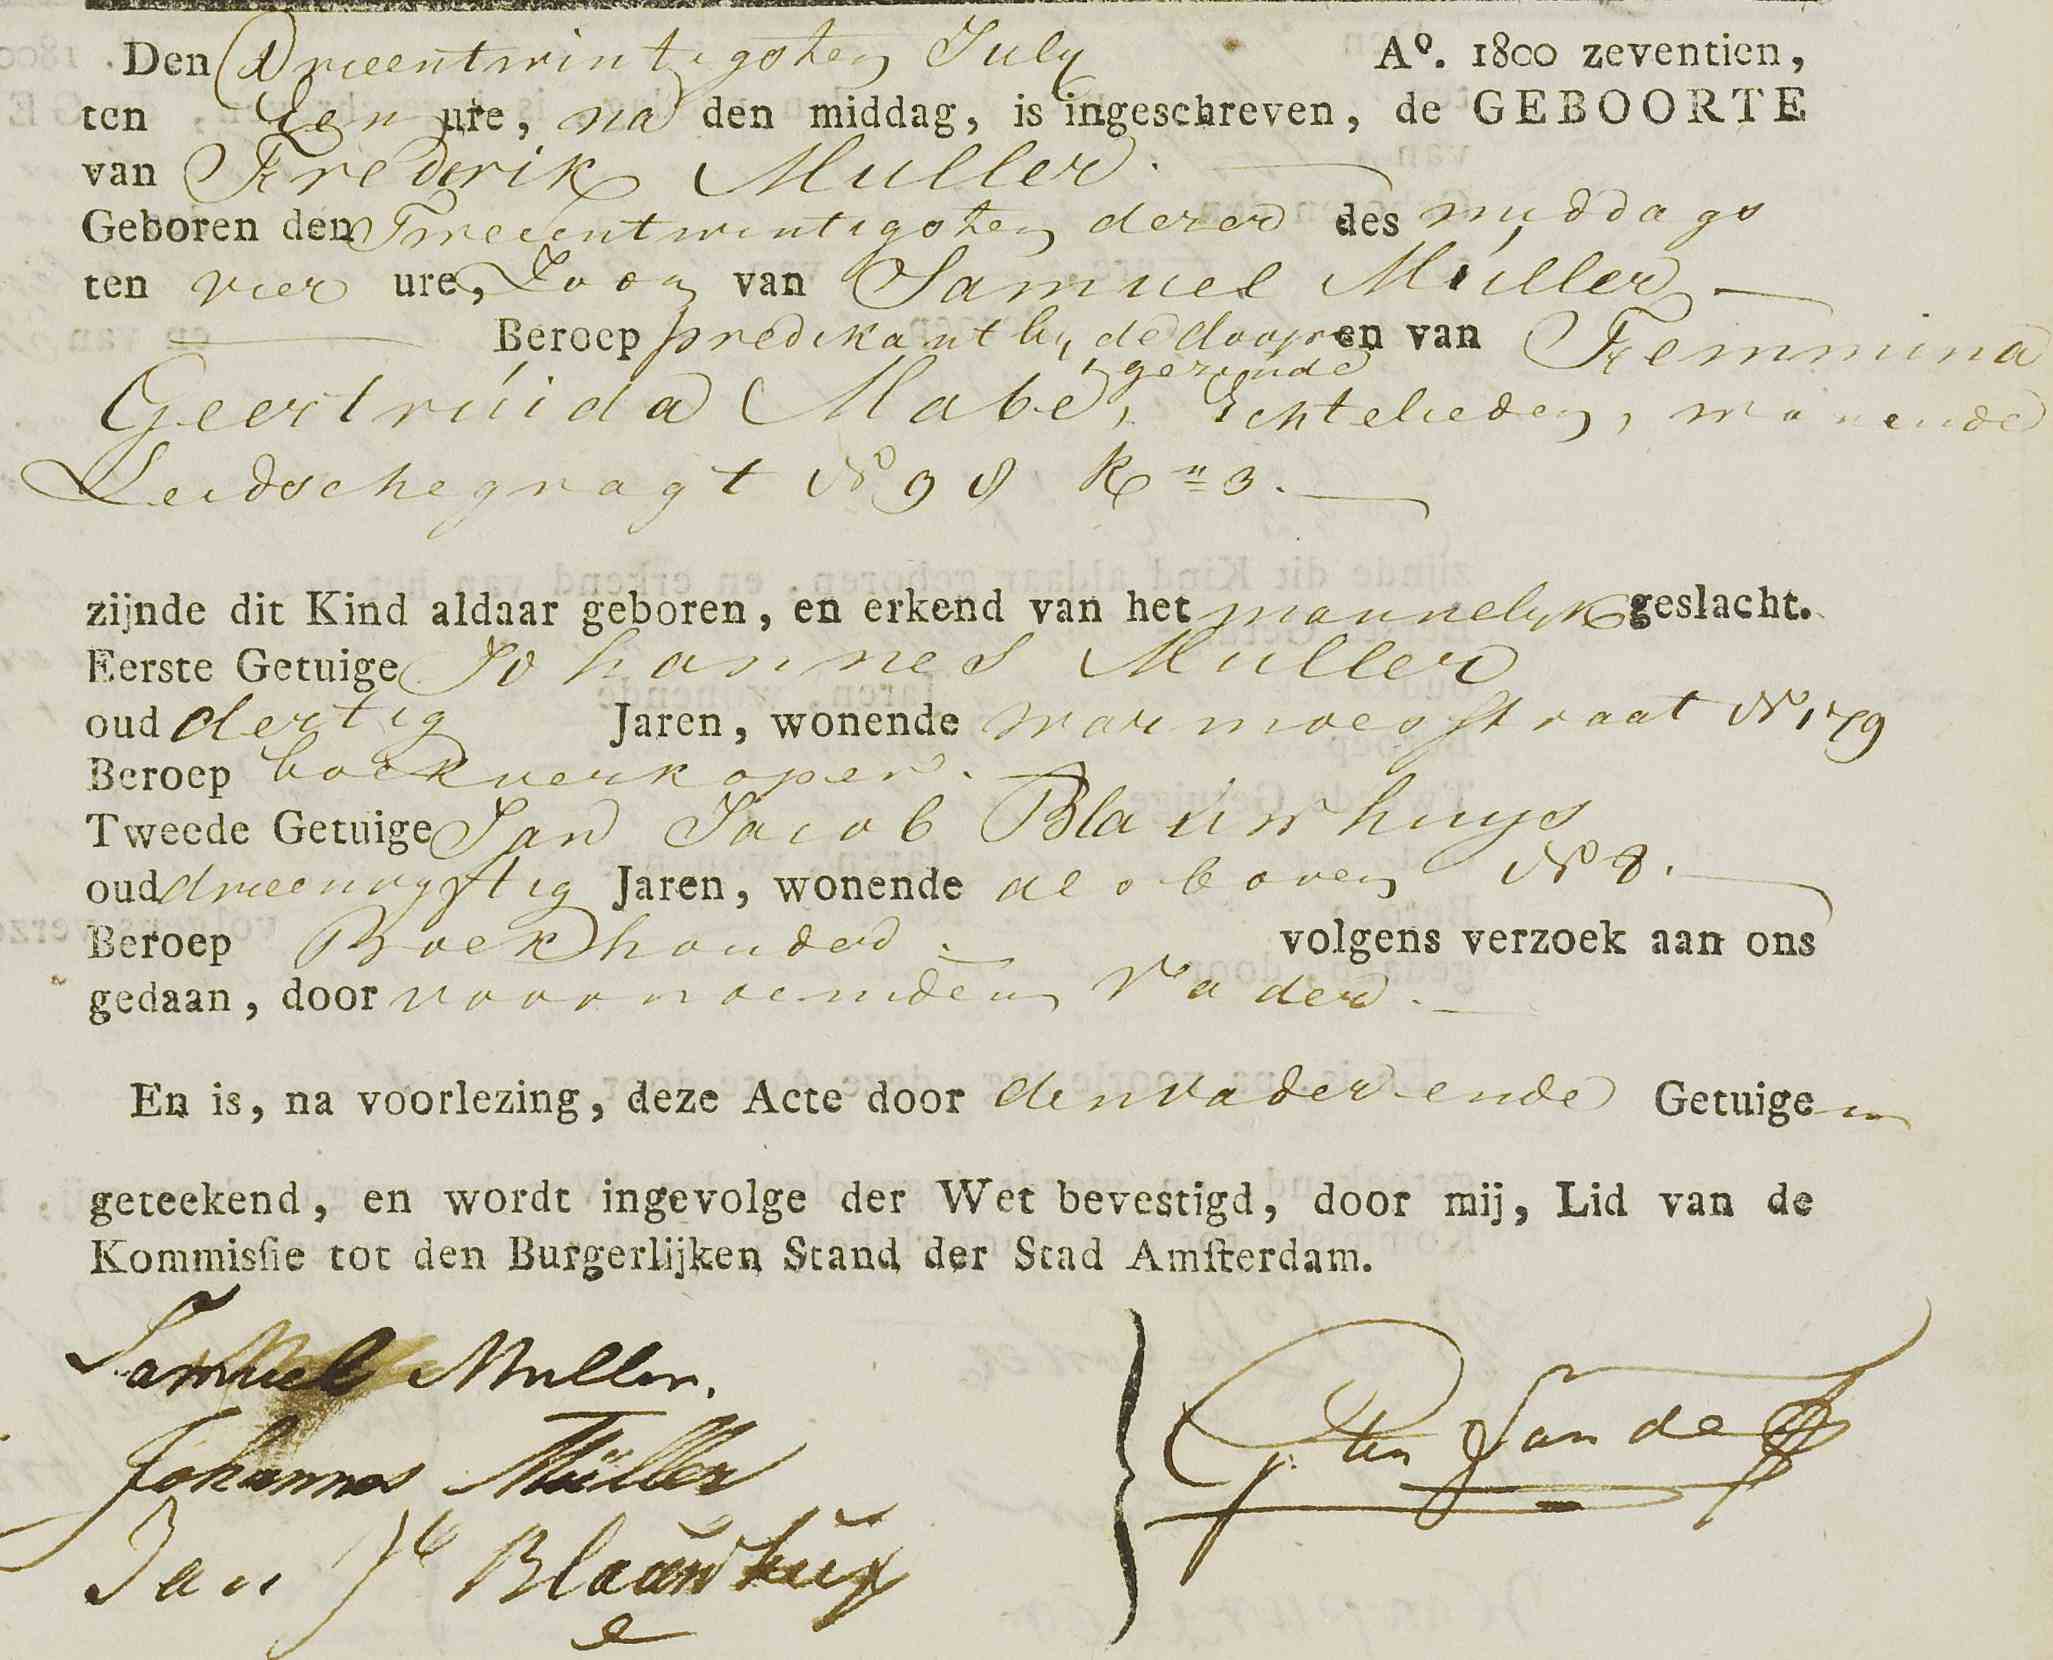 Den Drieentwintigsten July Aº. 1800 zeventien,
ten Een ure, na den middag, is ingeschreven, de GEBOORTE
van Frederik Muller.
Geboren den Tweeentwintigsten dezer des middags
ten vier ure, Zoon van Samuel Muller
Beroep predikant by de doops en van Femmina
gezinde
Geertruida Mabé, Echtelieden, wonende
Leidschegragt Nº 98 Kn 3.
zijnde dit Kind aldaar geboren, en erkend van het mannelyk geslacht.
Eerste Getuige Johannes Muller
oud dertig Jaren, wonende warmoesstraat Nº 179
Beroep boekverkoper.
Tweede Getuige Jan Jacob Blauwhuys
oud drieenvyftig Jaren, wonende als boven Nº 8.
Beroep Boekhouder. volgens verzoek aan ons
gedaan, door voornoemden Vader.
En is, na voorlezing, deze Acte door den vader en de Getuigen
geteekend, en wordt ingevolge der Wet bevestigd, door mij, Lid van de
Kommissie tot den Burgerlijken Stand der Stad Amsterdam.
Samuel Muller.
Johannes Müller
Jan Jb Blaauwhuys
ten Sande